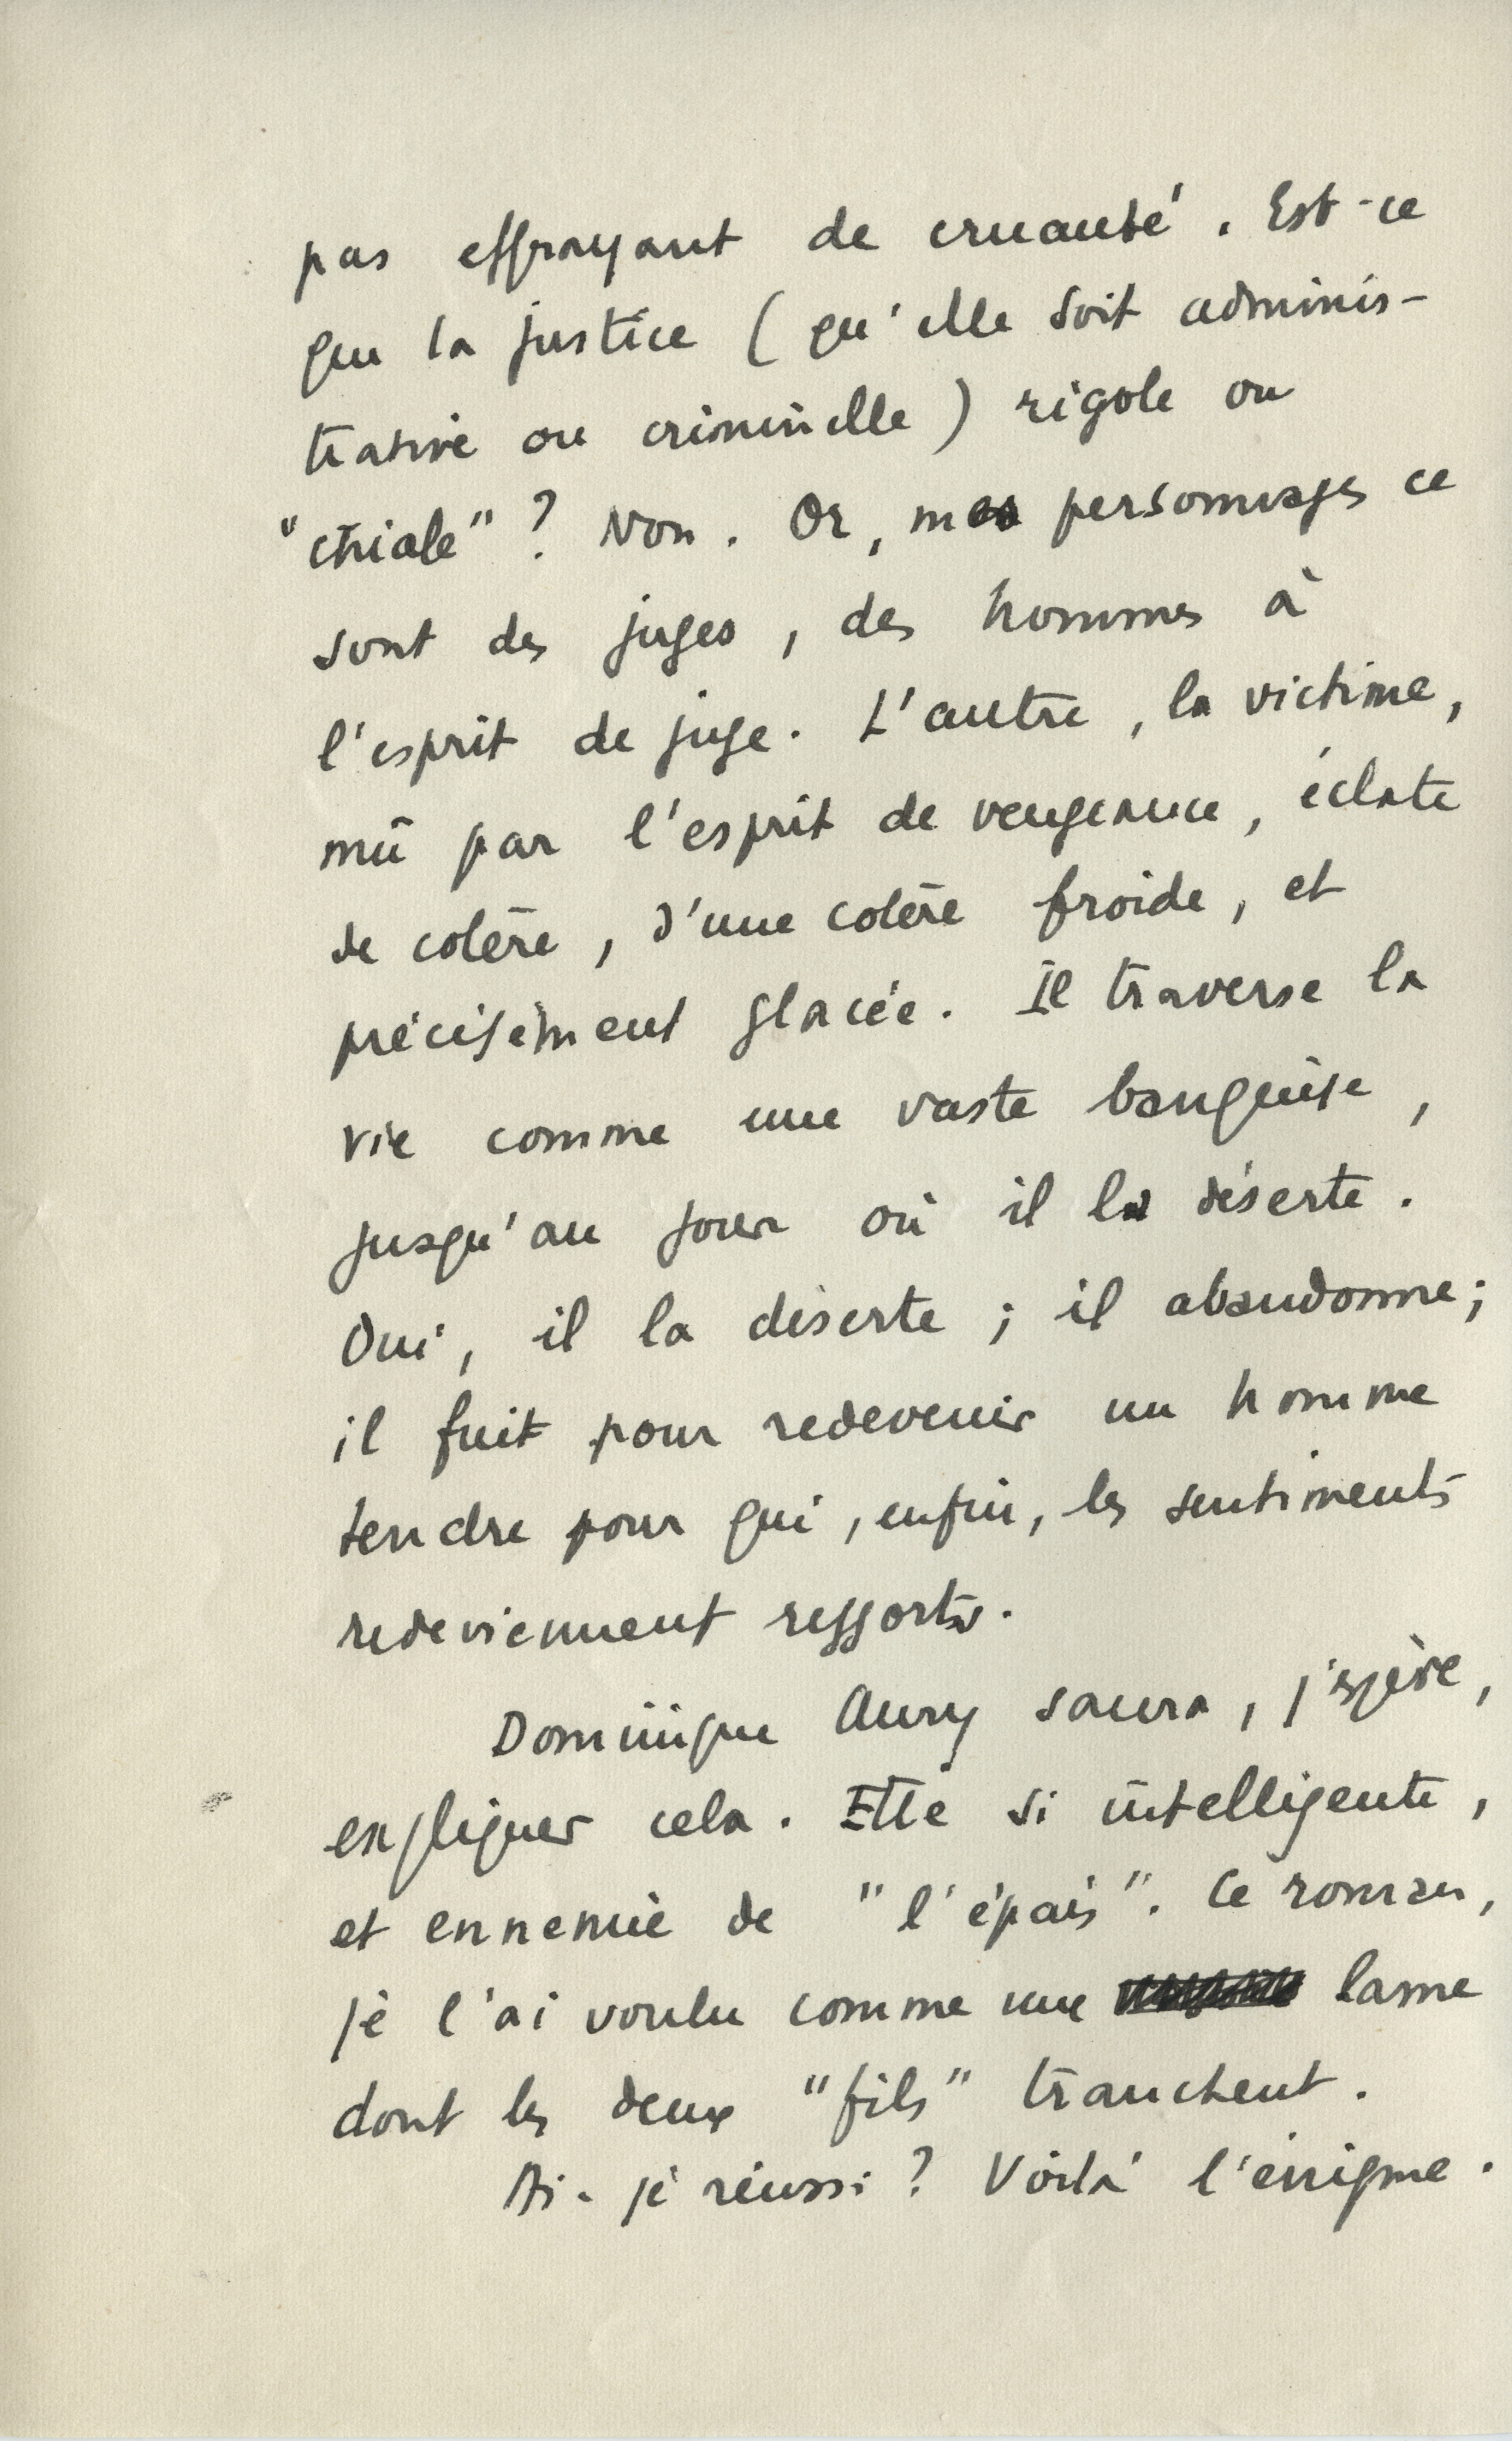 pas effrayant de cruauté. Est-ce
que la justice (qu'elle soit adminis-
trative ou criminelle) rigole ou
"chiale"? Non. Or, mes personnages ce
sont des juges, des hommes à
l'esprit de juge. L'autre, la victime,
mû par l'esprit de vengeance, éclate
de colère, d'une colère froide, et
précisément glacée. Il traverse la
vie comme une vaste banquise,
jusqu'au jour où il la déserte.
Oui, il la déserte; il abandonne;
il fuit pour redevenir un homme
tendre pour qui, enfin, les sentiments
redeviennent ressorts.
Dominique Aury saura, j'espère,
expliquer cela. Elle si intelligente,
et ennemie de "l'épais". Ce roman,
je l'ai voulu comme une lame
dont les deux "fils" tranchent.
Ai-je réussi? Voilà l'énigme.